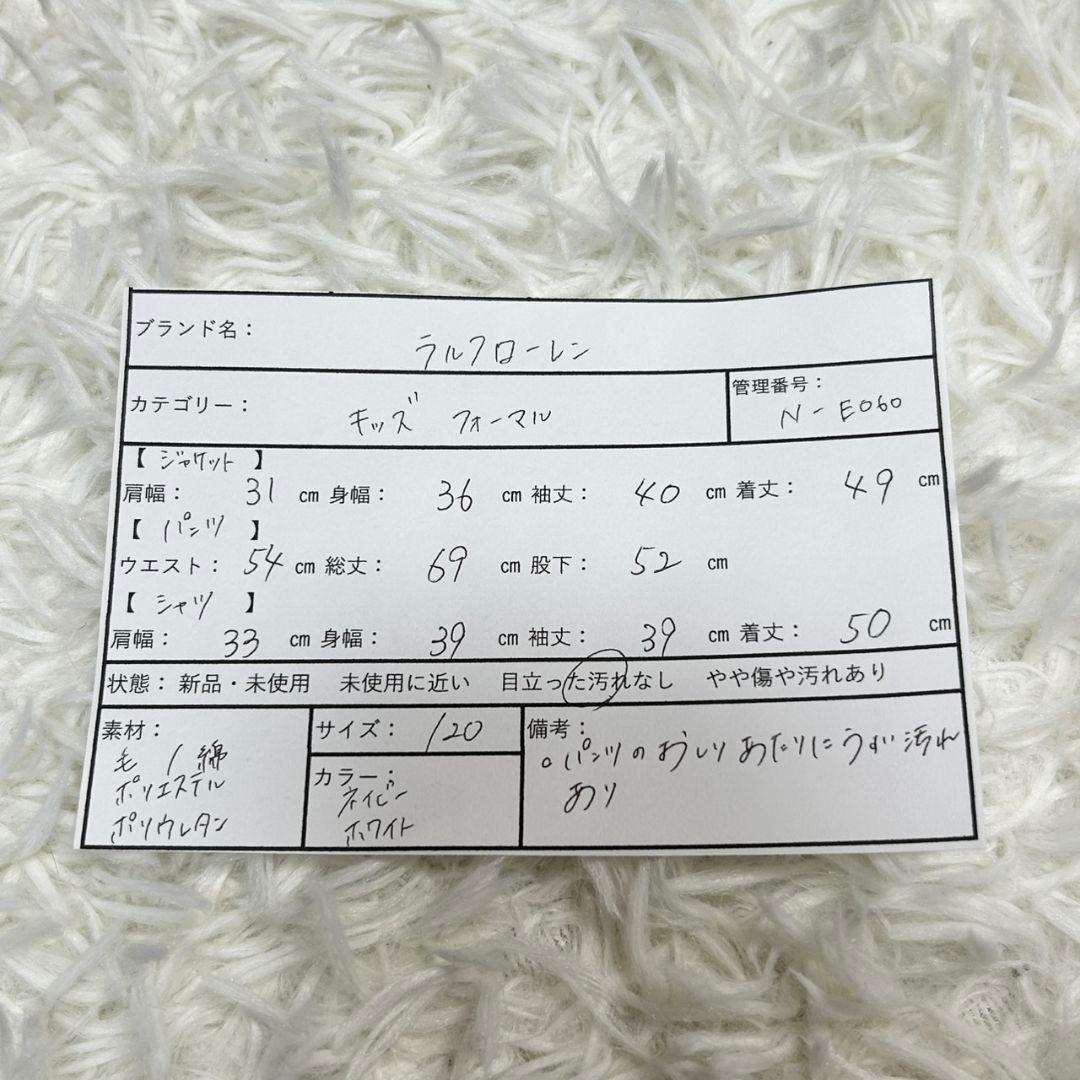 ブランド名： ラルフローレン
カテゴリー： キッズ フォーマル 管理番号： N-E060
【 ジャケット 】
肩幅： 31 cm 身幅： 36 cm 袖丈： 40 cm 着丈： 49 cm
【 パンツ 】
ウエスト： 54 cm 総丈： 69 cm 股下： 52 cm
【 シャツ 】
肩幅： 33 cm 身幅： 39 cm 袖丈： 39 cm 着丈： 50 cm
状態：新品・未使用 未使用に近い 目立った汚れなし やや傷や汚れあり
素材：
毛 / 綿
ポリエステル
ポリウレタン
サイズ： 120
カラー：
ネイビー
ホワイト
備考：
。パンツのおしりあたりにうすい汚れ
あり